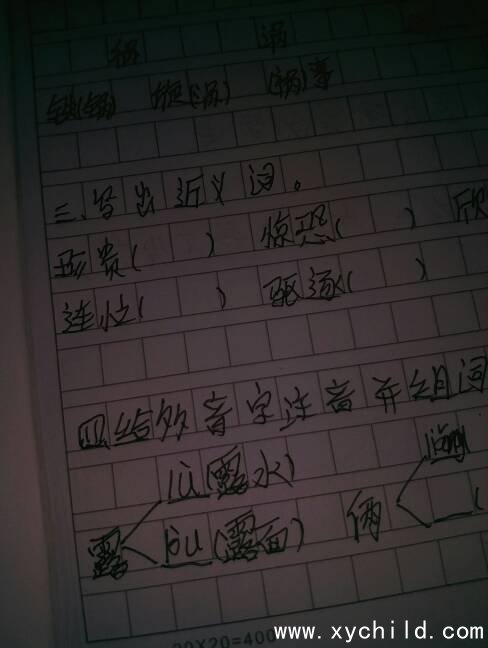 祸 涡
铁(锅) 旋(涡) (祸)害
三、写出近义词。
珍贵( ) 惊恐( ) 欣
连忙( ) 驱逐( )
四给多音字注音并组词
lù(露水)
露 lòu(露面) 俩 liǎng
20X20=400
www.xychild.com